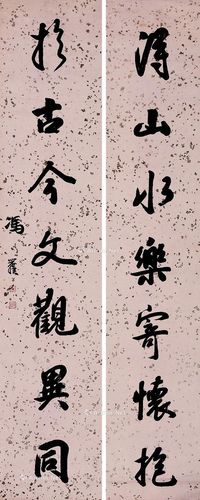 得山水樂寄懷抱
於古今文觀異同
馮